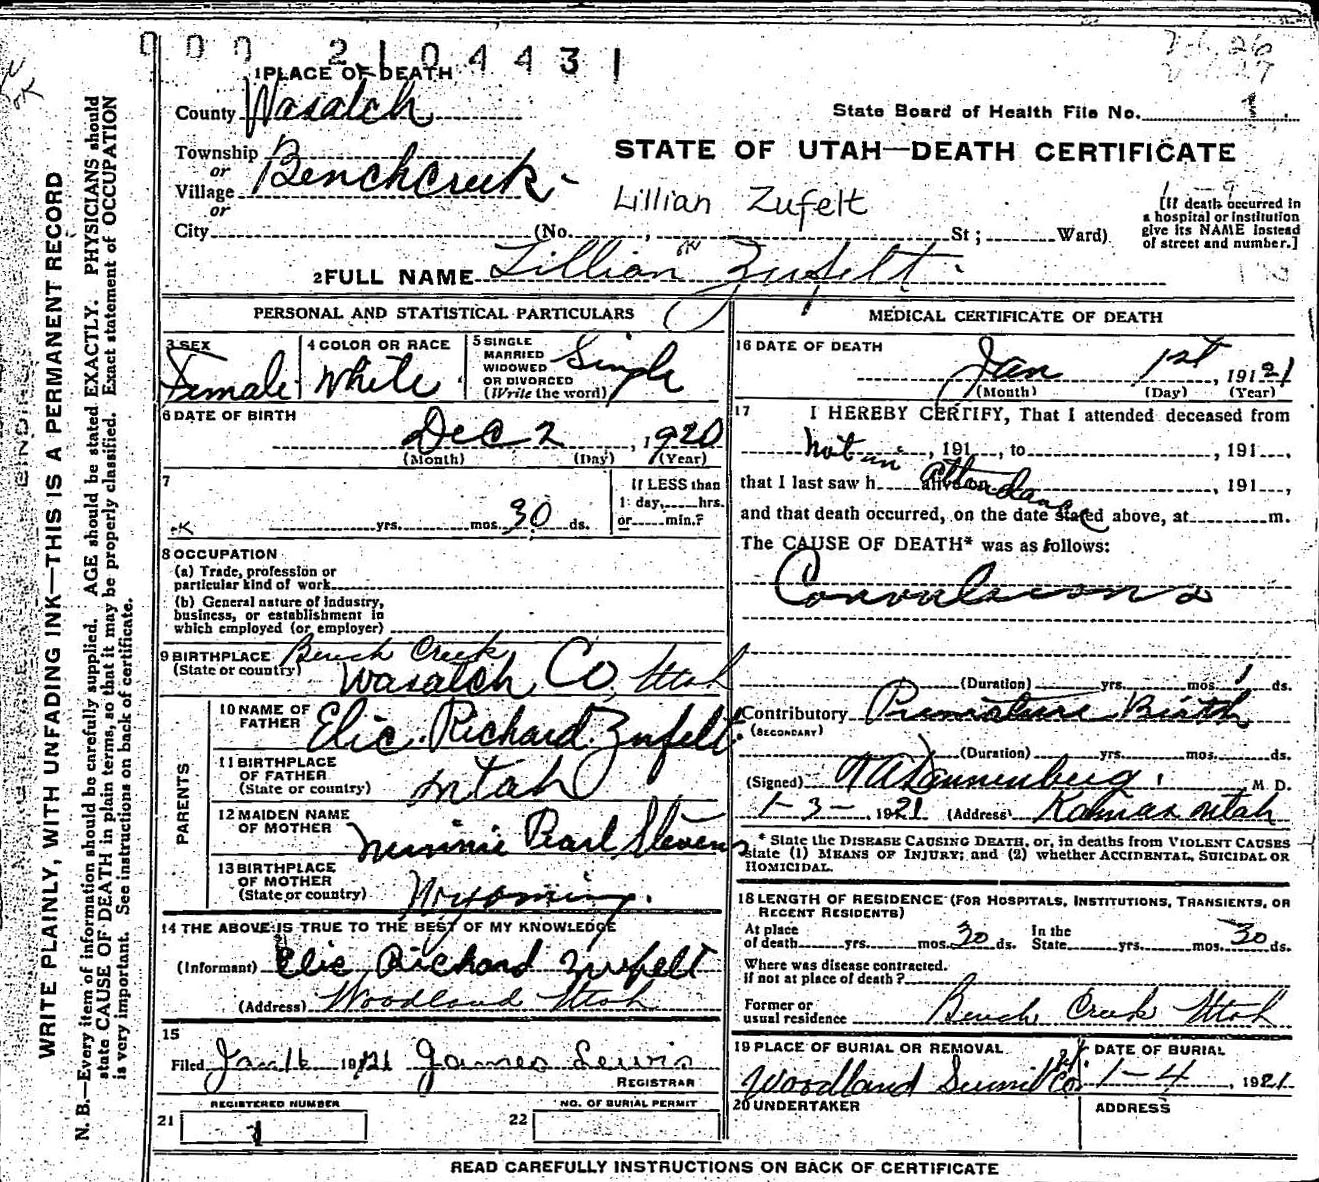 000 2104431
1 PLACE OF DEATH
County Wasatch
State Board of Health File No. 1
Township
or
Village Benchcreek
or
City (No. , St; Ward)
STATE OF UTAH—DEATH CERTIFICATE
Lillian Zufelt
[If death occurred in
a hospital or institution
give its NAME instead
of street and number.]
2 FULL NAME Lillian Zufelt
PERSONAL AND STATISTICAL PARTICULARS
3 SEX
Female
4 COLOR OR RACE
White
5 SINGLE
MARRIED
WIDOWED
OR DIVORCED
(Write the word)
Single
6 DATE OF BIRTH
Dec 2, 1920
(Month) (Day) (Year)
7
yrs. mos. 30 ds.
If LESS than
1 day, hrs.
or min.?
8 OCCUPATION
(a) Trade, profession or
particular kind of work
(b) General nature of industry,
business, or establishment in
which employed (or employer)
9 BIRTHPLACE
(State or country)
Bench Creek
Wasatch Co, Utah
PARENTS
10 NAME OF
FATHER
Elic Richard Zufelt
11 BIRTHPLACE
OF FATHER
(State or country)
Utah
12 MAIDEN NAME
OF MOTHER
Minnie Pearl Stevens
13 BIRTHPLACE
OF MOTHER
(State or country)
Wyoming.
14 THE ABOVE IS TRUE TO THE BEST OF MY KNOWLEDGE
(Informant) Elic Richard Zufelt
(Address) Woodland Utah
15
Filed Jan 16 1921 James Lewis
REGISTRAR
REGISTERED NUMBER
21 1
NO. OF BURIAL PERMIT
22
MEDICAL CERTIFICATE OF DEATH
16 DATE OF DEATH
Jan 1st, 1921
(Month) (Day) (Year)
17 I HEREBY CERTIFY, That I attended deceased from
Not in , 191 , to , 191 ,
that I last saw h alive on attendance , 191 ,
and that death occurred, on the date stated above, at m.
The CAUSE OF DEATH* was as follows:
Convulsions
(Duration) yrs. mos. 1 ds.
Contributory Premature Birth
(SECONDARY)
(Duration) yrs. mos. ds.
(Signed) Dannenberg. M D.
1-3-, 1921 (Address) Kamas Utah
* State the DISEASE CAUSING DEATH, or, in deaths from VIOLENT CAUSES
state (1) MEANS OF INJURY; and (2) whether ACCIDENTAL, SUICIDAL OR
HOMICIDAL.
18 LENGTH OF RESIDENCE (FOR HOSPITALS, INSTITUTIONS, TRANSIENTS, OR
RECENT RESIDENTS)
At place
of death yrs. mos. 30 ds. In the
State yrs. mos. 30 ds.
Where was disease contracted.
if not at place of death?
Former or
usual residence Bench Creek Utah
19 PLACE OF BURIAL OR REMOVAL
Woodland Summit Co.
DATE OF BURIAL
1-4, 1921
20 UNDERTAKER
ADDRESS
READ CAREFULLY INSTRUCTIONS ON BACK OF CERTIFICATE
WRITE PLAINLY, WITH UNFADING INK—THIS IS A PERMANENT RECORD
N. B.—Every item of information should be carefully supplied. AGE should be stated EXACTLY. PHYSICIANS should
state CAUSE OF DEATH in plain terms, so that it may be properly classified. Exact statement of OCCUPATION
is very important. See instructions on back of certificate.